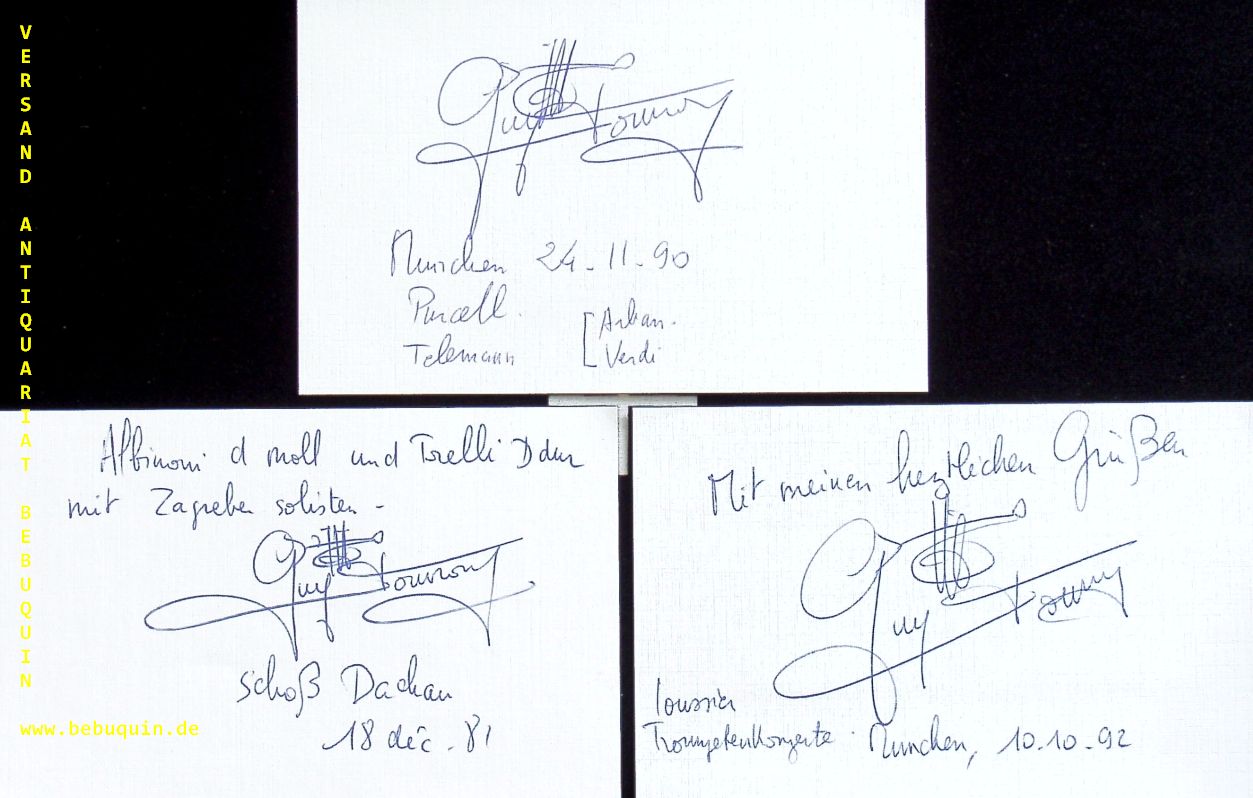 VERSAND ANTIQUARIAT BEBUQUIN
www.bebuquin.de
Guy Touvron
München 24-11-90
Purcell.
Telemann
[Arban.
Verdi
Albinoni d moll und Torelli D dur
mit Zagreber solisten -
Guy Touvron
schoß Dachau
18 déc. 81
Mit meinen herztlichen Grüßen
Guy Touvron
Loussier
Trompetenkonzerte. München, 10.10.92